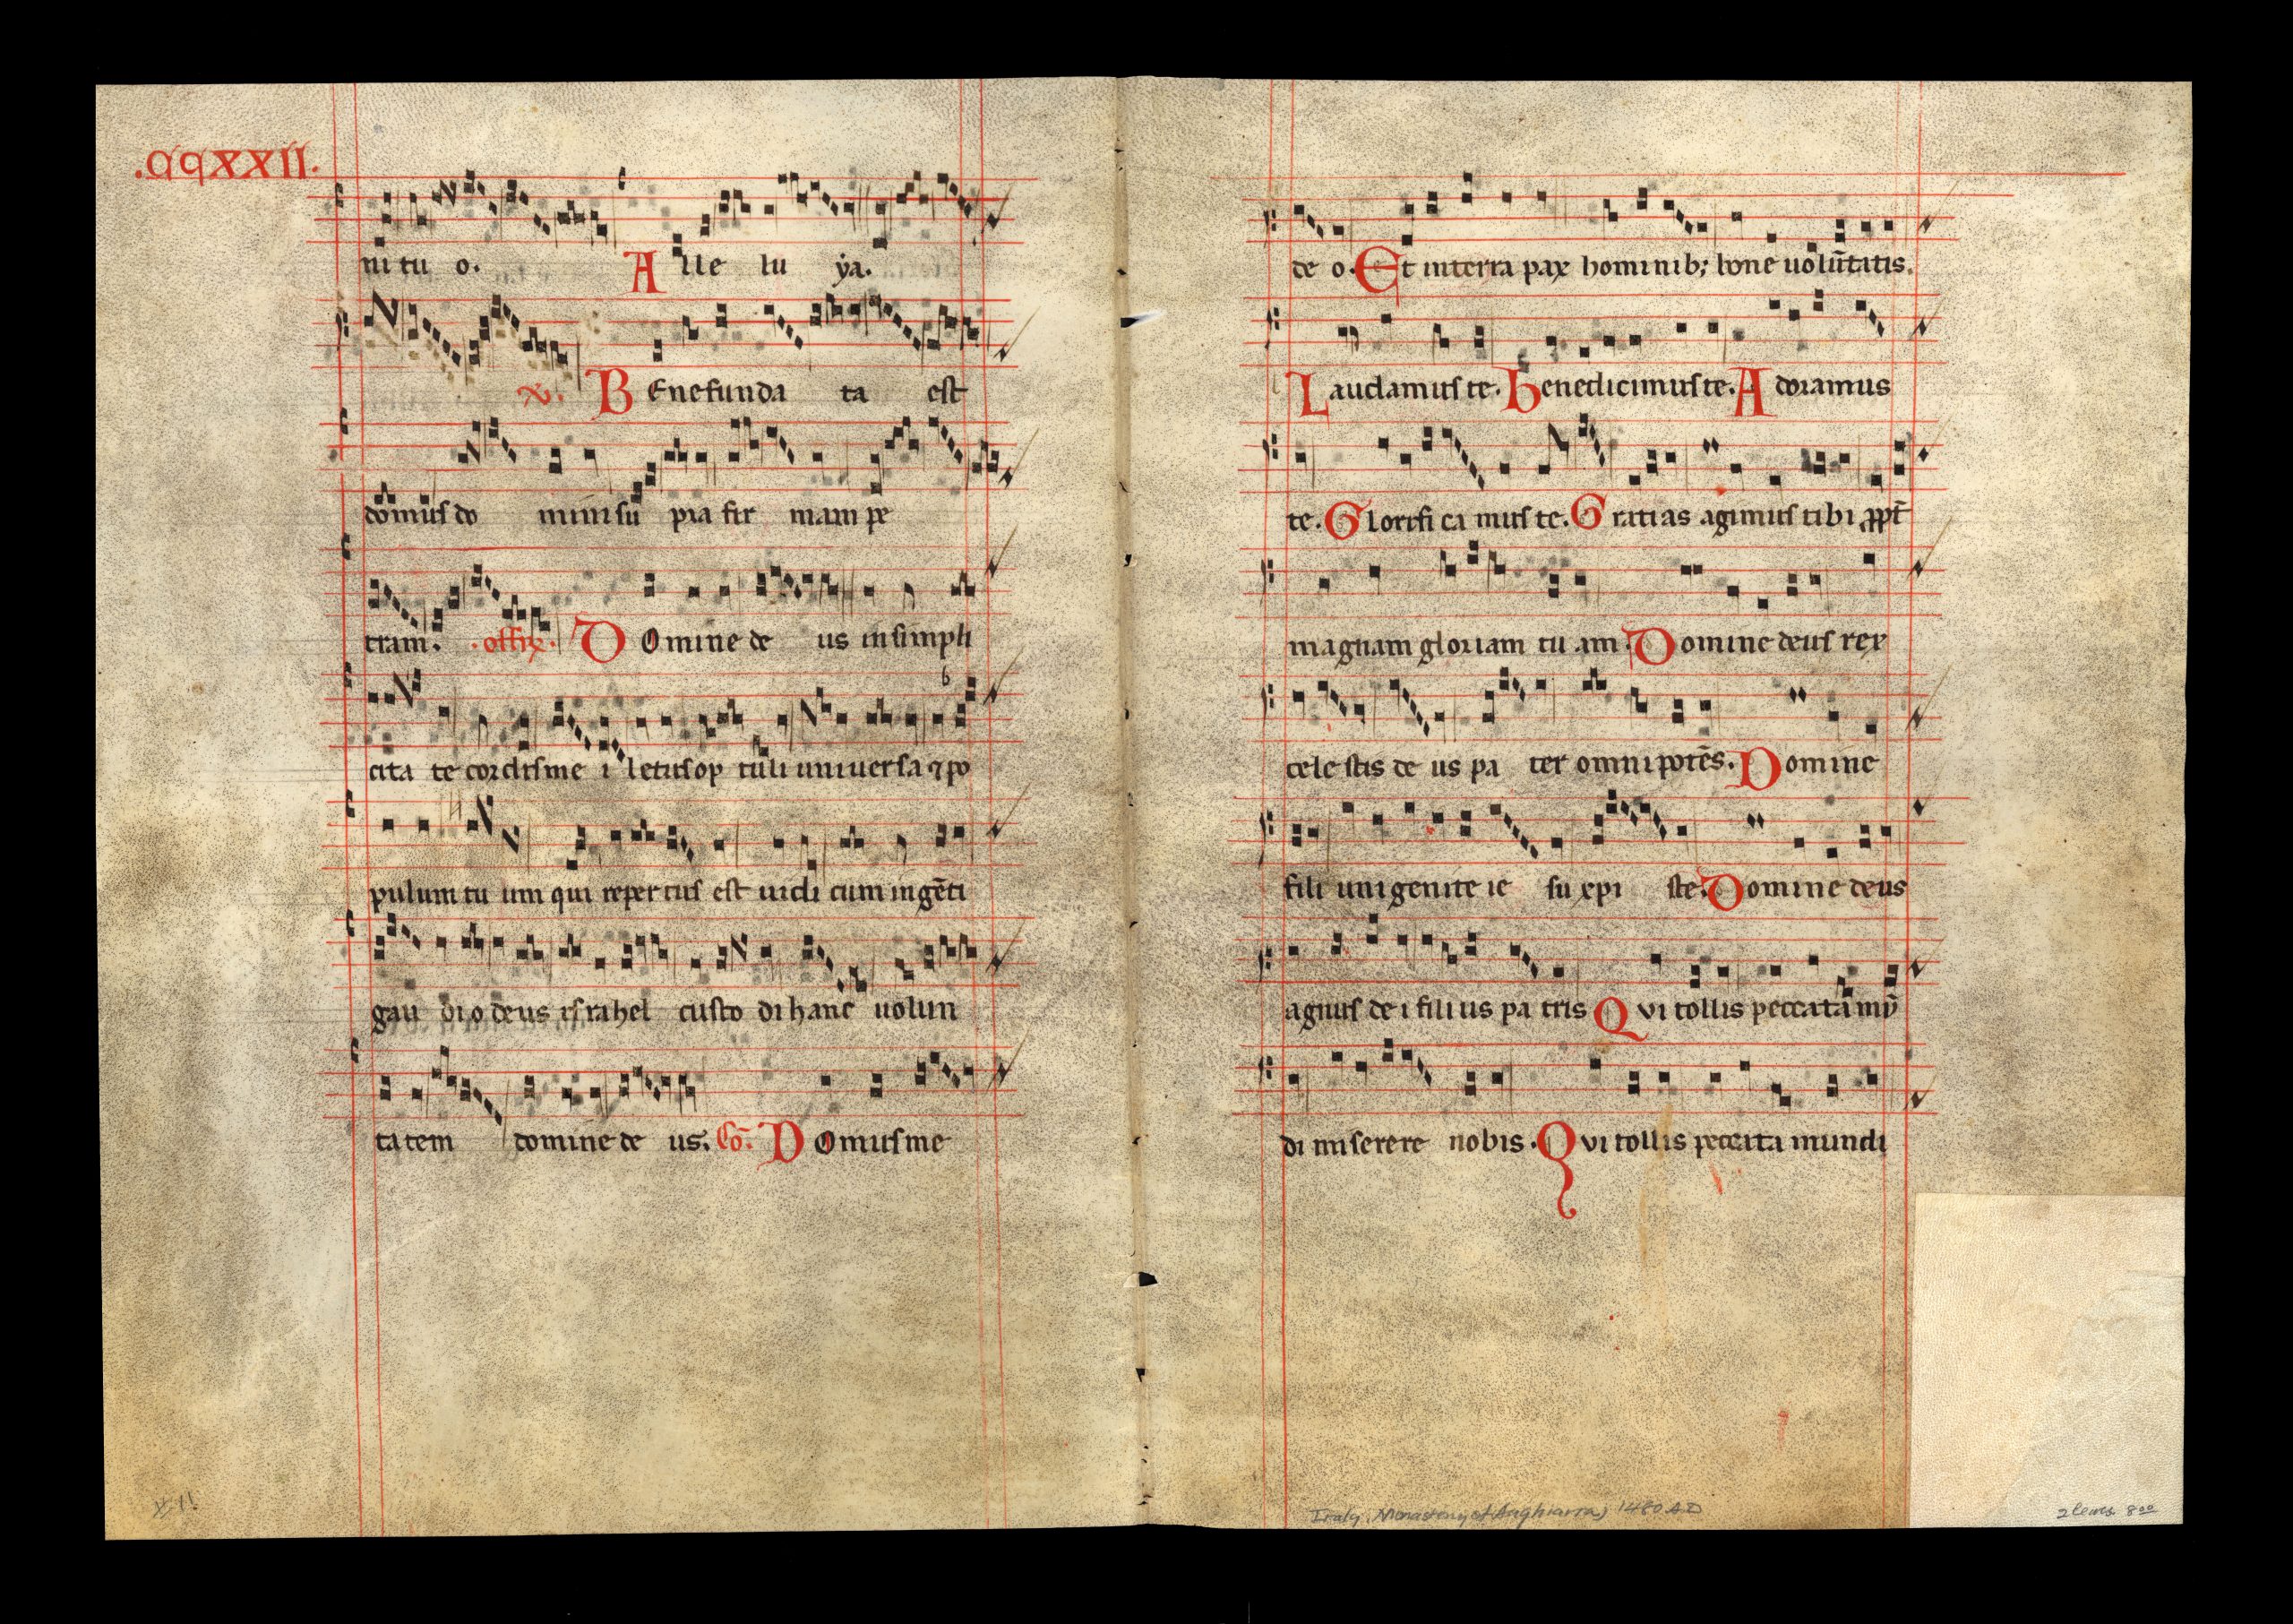 .CCXXII.
ni tu o. A lle lu ẏa.
℣. B Enefunda ta est
domus do mini su pra fir mam pe
tram. .offr̄. D Omine de us insimpli
cita te cordis me i letus op tuli universa ⁊ po
pulum tu um qui reper tus est uidi cum ingēti
gau di o deus israhel custo di hanc uolun
ta tem domine de us. Cō. D Omus me
de o. Et interra pax hominib; bone uolūtatis.
Laudamus te. benedicimus te. A doramus
te. Glorifi ca mus te. G ratias agimus tibi ꝓpt̄
magnam gloriam tu am. Domine deus rex
cele stis de us pa ter omnipotēs. Domine
fili unigenite ie su xpi ste. Domine deus
agnus de i filius pa tris Qvi tollis peccata mū
di miserere nobis. Qvi tollis peccata mundi
Italy, Monastery of Anghiarra, 1480 AD
2 leaves 8⁰⁰